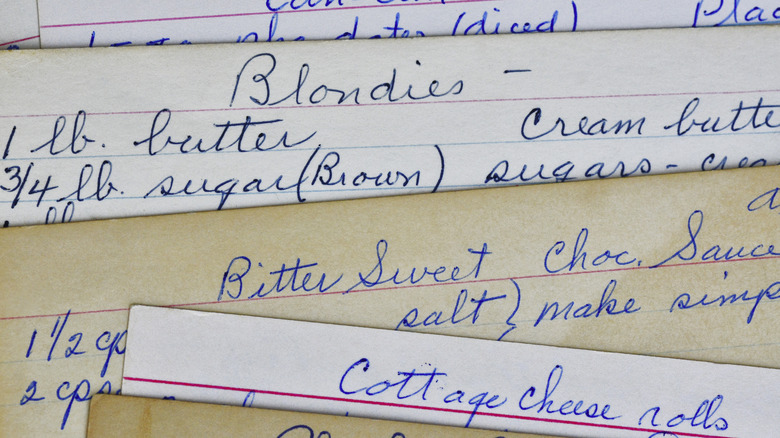 dates (diced)
Blondies -
1 lb. butter
Cream butte
3/4 lb. sugar (Brown)
sugars-
Bitter Sweet Choc. Sauce
salt} make simp
1 1/2 cp
2 cps
Cottage cheese rolls